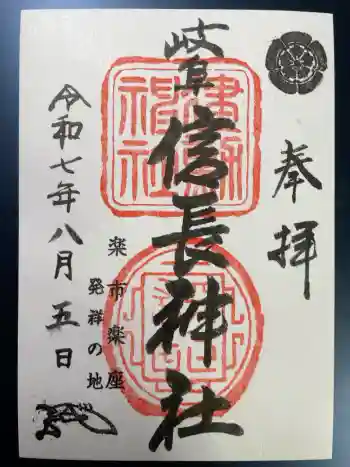 奉拝
岐阜
信長神社
楽市楽座
発祥の地
令和七年八月五日